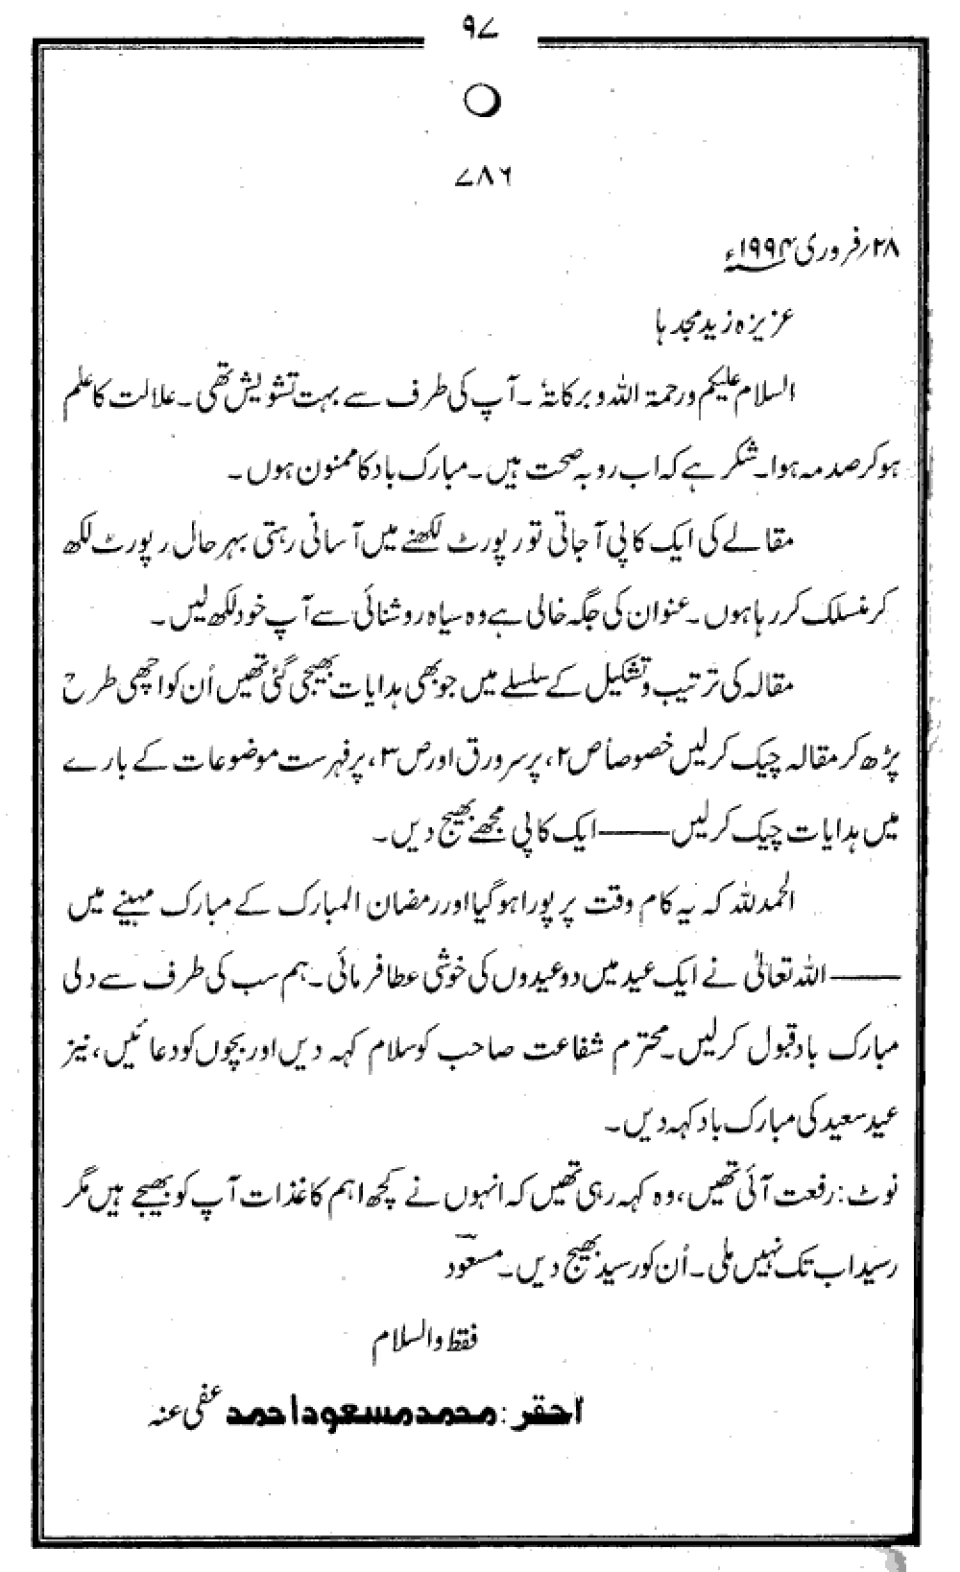 ۹۷
۷۸۶
۲۸؍فروری ۱۹۹۴ء
عزیزہ زید مجدہا
السلام علیکم ورحمۃ اللہ وبرکاتہٗ ۔ آپ کی طرف سے بہت تشویش تھی۔ علالت کا علم
ہوکر صدمہ ہوا۔ شکر ہے کہ اب روبہ صحت ہیں۔ مبارک باد کا ممنون ہوں۔
مقالے کی ایک کاپی آجاتی تو رپورٹ لکھنے میں آسانی رہتی بہرحال رپورٹ لکھ
کر منسلک کر رہا ہوں۔ عنوان کی جگہ خالی ہے وہ سیاہ روشنائی سے آپ خود لکھ لیں۔
مقالہ کی ترتیب وتشکیل کے سلسلے میں جو بھی ہدایات بھیجی گئی تھیں اُن کو اچھی طرح
پڑھ کر مقالہ چیک کرلیں خصوصاً ص ۲، پر سرورق اور ص ۳، پر فہرست موضوعات کے بارے
میں ہدایات چیک کرلیں —— ایک کاپی مجھے بھیج دیں۔
الحمدللہ کہ یہ کام وقت پر پورا ہوگیا اور رمضان المبارک کے مبارک مہینے میں
—— اللہ تعالیٰ نے ایک عید میں دو عیدوں کی خوشی عطا فرمائی۔ ہم سب کی طرف سے دلی
مبارک باد قبول کرلیں۔ محترم شفاعت صاحب کو سلام کہہ دیں اور بچوں کو دعائیں، نیز
عید سعید کی مبارک باد کہہ دیں۔
نوٹ: رفعت آئی تھیں، وہ کہہ رہی تھیں کہ انہوں نے کچھ اہم کاغذات آپ کو بھیجے ہیں مگر
رسید اب تک نہیں ملی۔ اُن کو رسید بھیج دیں۔ مسعود
فقط والسلام
احقر: محمد مسعود احمد عفی عنہ